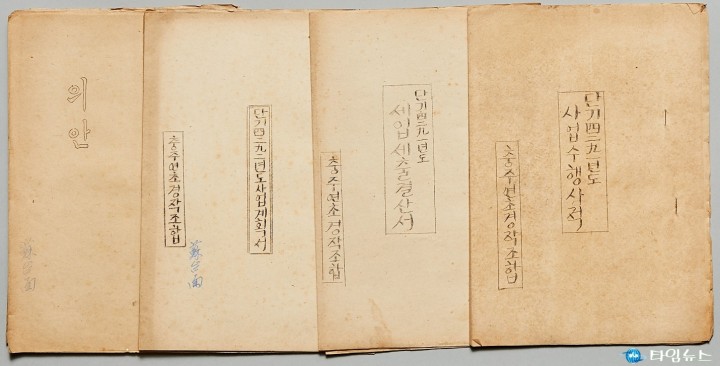 의안
蘇台面
단기四二九二년도사업계획서
충주연초경작조합
蘇台面
단기四二九一년도
세입세출결산서
충주연초경작조합
단기四二九一년도
사업수행사적
충주연초경작조합
타임뉴스